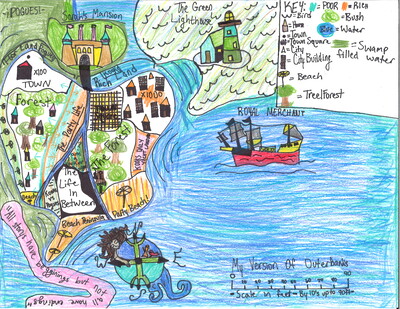 :POGUES:
Sarah's Mansion
The Green
Lighthouse
KEY:
= POOR
= Rich
= Bird
= Bush
= House
= Water
= Town
= Town Square
= Swamp
filled water
= City
= City Building
= Beach
= Tree/Forest
X100
TOWN
Rich Land
X1000
Forest
The Party Life
The Forest
ROYAL MERCHANT
The
Life In
Between
Party Beach!
Beach Peninsula
"All storys have beginings but not
all have endings"
W
E
My Version Of Outerbanks
"Scale" in feet - By 10's up to 90ft-